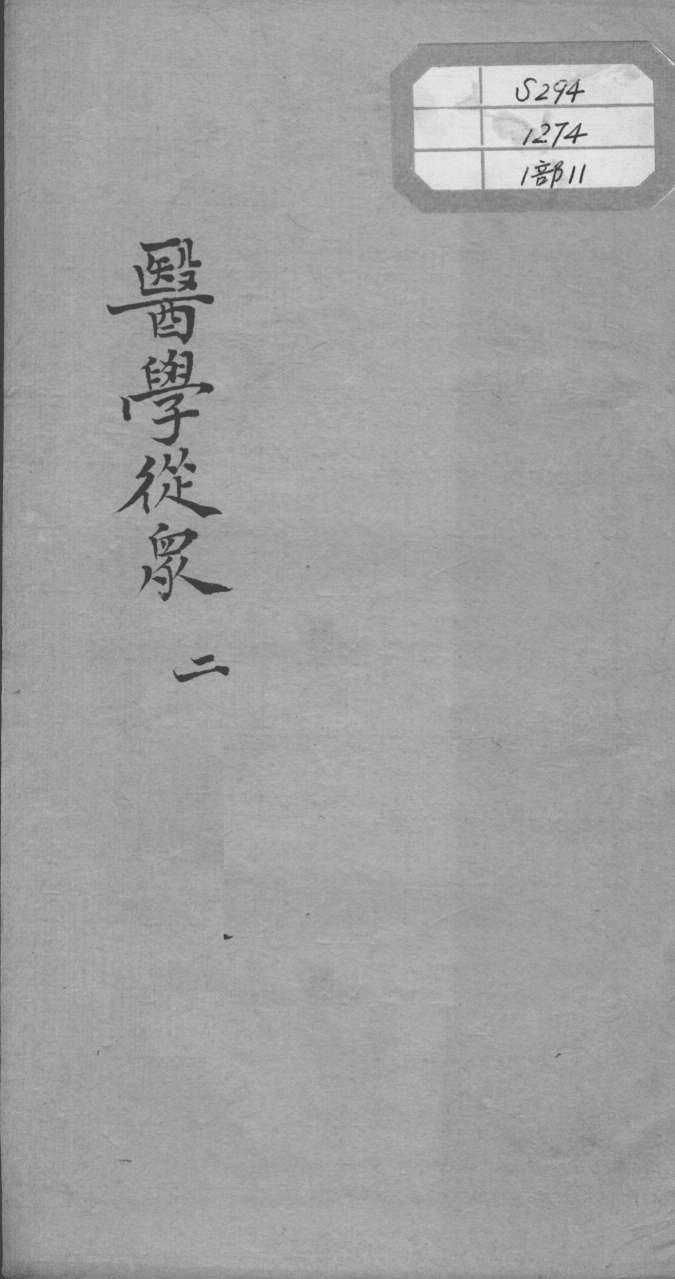 S294
1274
1部11
醫學從眾
二